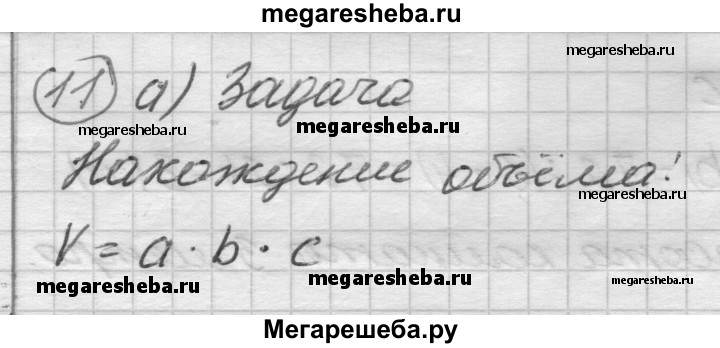 megaresheba.ru
megaresheba.ru
11 а) Задача
megaresheba.ru
megaresheba.ru
Нахождение объёма!
megaresheba.ru
V = a · b · c
megaresheba.ru
megaresheba.ru
Мегарешеба.ру